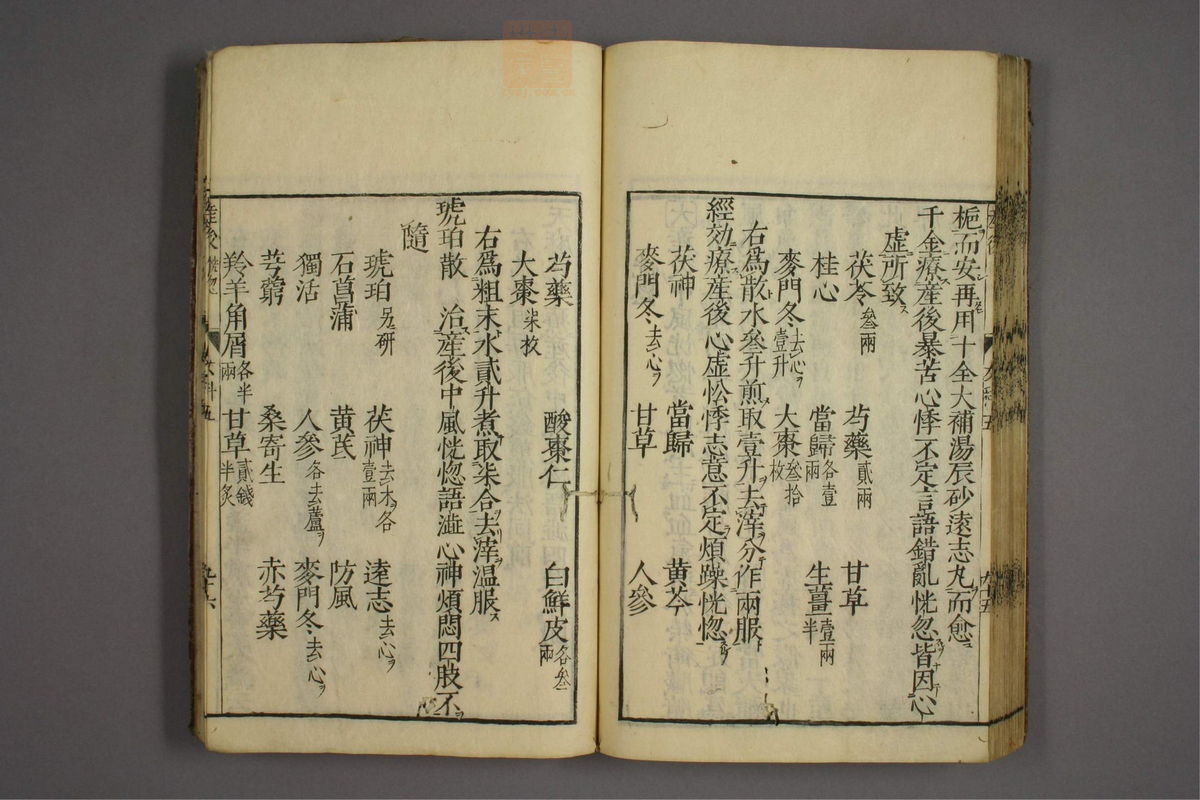 梔而安再用十全大補湯辰砂遠志丸而愈
千金療産後暴苦心悸不定言語錯亂恍忽皆因心
虚所致
茯苓叁兩 芍藥貳兩 甘草
桂心 當歸各壹兩 生薑壹兩半
麥門冬去心壹升 大棗叁拾枚
右爲散水叁升煎取壹升去滓分作兩服
經効療産後心虚忪悸志意不定煩躁恍惚
茯神 當歸 黄芩
麥門冬去心 甘草 人參
芍藥 酸棗仁 白鮮皮各叁兩
大棗柒枚
右爲粗末水貳升煮取柒合去滓温服
琥珀散 治産後中風恍惚語澁心神煩悶四肢不
隨
琥珀另研 茯神去木各壹兩 遠志去心
石菖蒲 黄芪 防風
獨活 人參各去蘆 麥門冬去心
芎藭 桑寄生 赤芍藥
羚羊角屑各半兩 甘草貳錢半炙